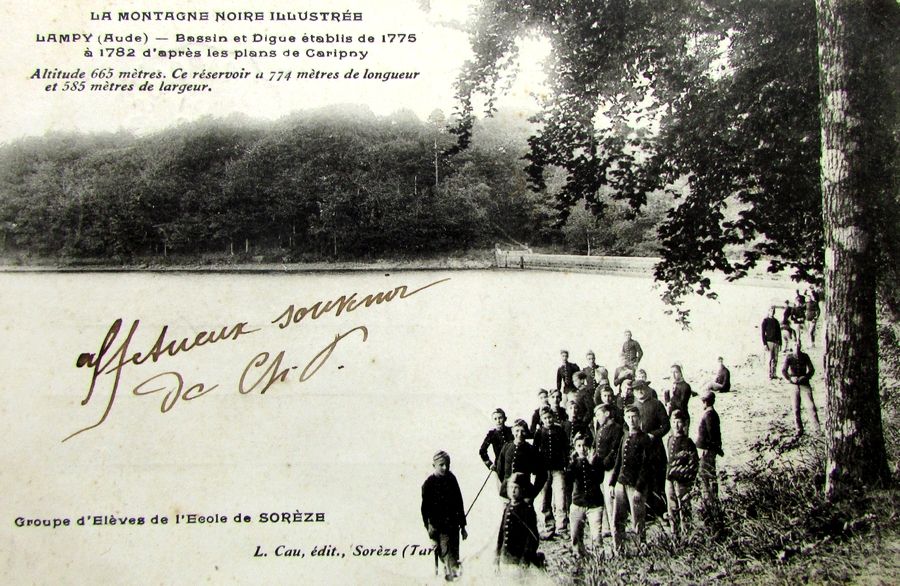 LA MONTAGNE NOIRE ILLUSTRÉE
LAMPY (Aude) — Bassin et Digue établis de 1775
à 1782 d'après les plans de Caripny
Altitude 665 mètres. Ce réservoir a 774 mètres de longueur
et 585 mètres de largeur.
affetueux souvenir
de Ch. P.
Groupe d'Elèves de l'Ecole de SORÈZE
L. Cau, édit., Sorèze (Tar